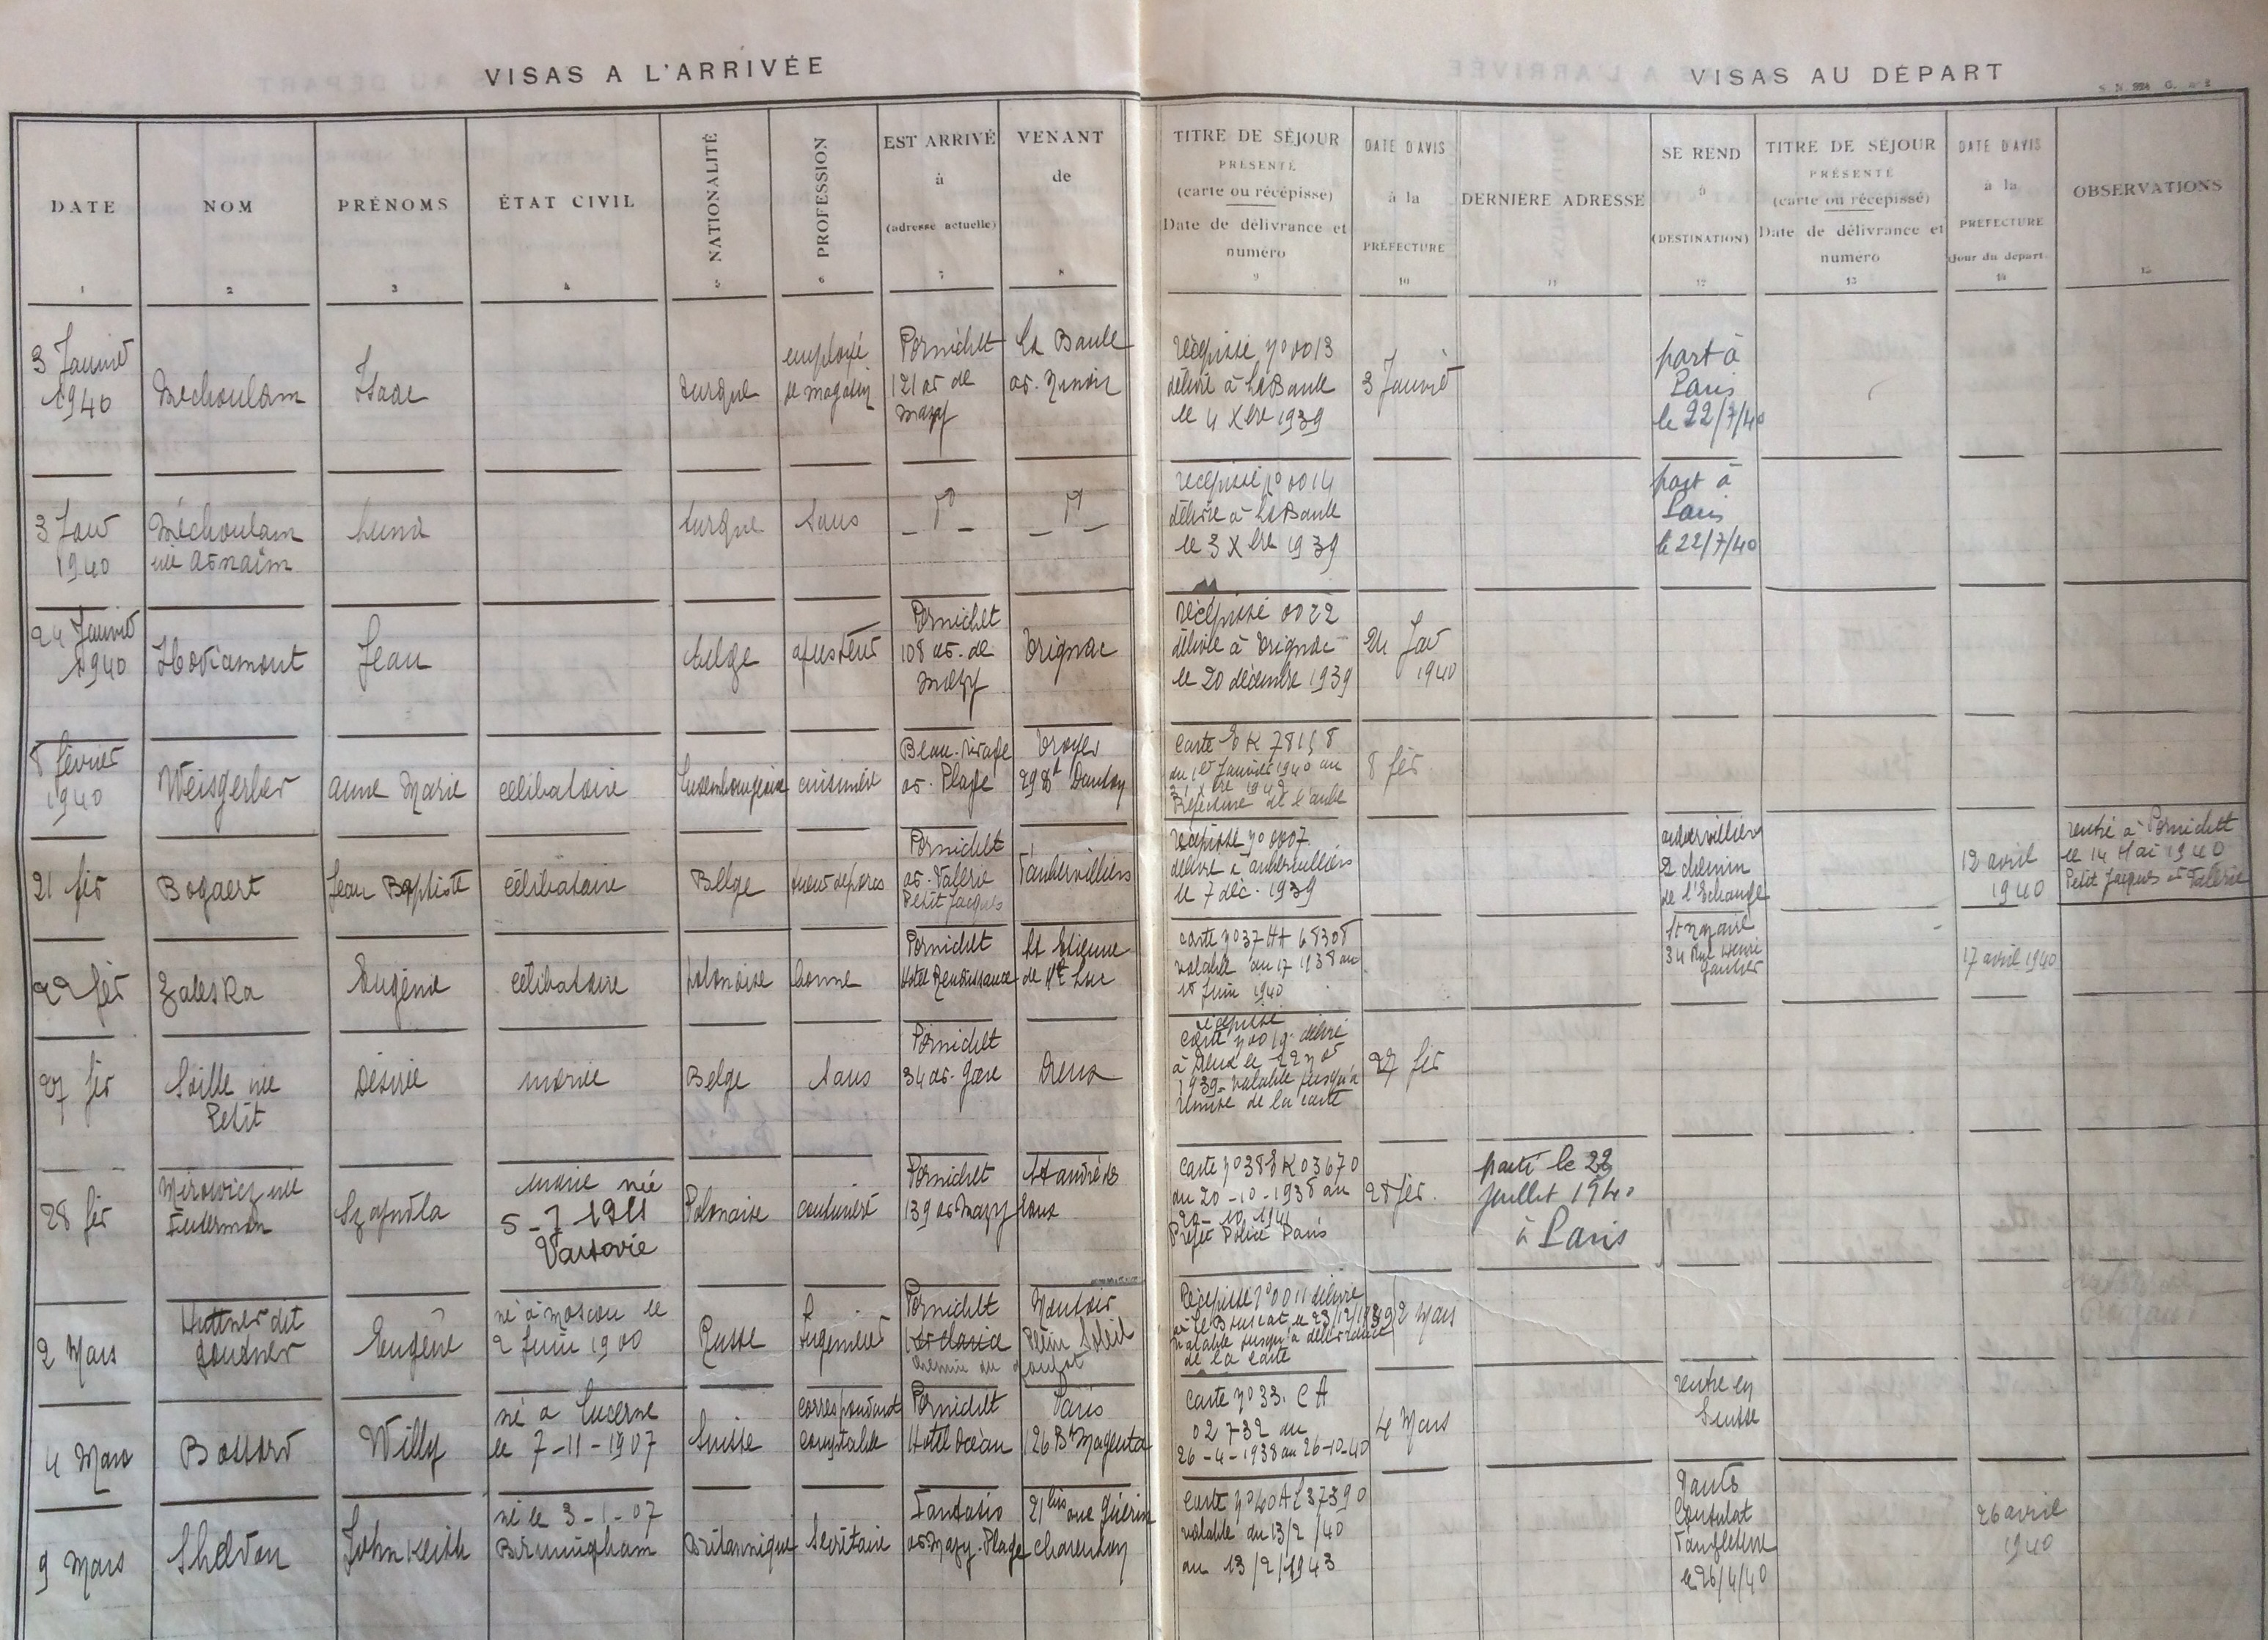 VISAS A L'ARRIVÉE
VISAS AU DÉPART
DATE
1
NOM
2
PRÉNOMS
3
ÉTAT CIVIL
4
NATIONALITÉ
5
PROFESSION
6
EST ARRIVÉ
à
(adresse actuelle)
7
VENANT
de
8
TITRE DE SÉJOUR
PRÉSENTÉ
(carte ou récépissé)
Date de délivrance et
numéro
9
DATE D'AVIS
à la
PRÉFECTURE
10
DERNIÈRE ADRESSE
11
SE REND
à
(DESTINATION)
12
TITRE DE SÉJOUR
PRÉSENTÉ
(carte ou récépissé)
Date de délivrance et
numéro
13
DATE D'AVIS
à la
PRÉFECTURE
Jour du départ
14
OBSERVATIONS
15
3 Janvier
1940
Mechoulam
Isaac
turque
employé
de magasin
Pornichet
121 av. de
Mazy
La Baule
av.
récépissé n° 0013
délivré à La Baule
le 4 Xbre 1939
3 Janvier
part à
Paris
le 22/7/40
3 Janv
1940
Méchoulam
née
Luna
turque
sans
récépissé n° 0014
délivré à La Baule
le 3 Xbre 1939
part à
Paris
le 22/7/40
24 Janvier
1940
Jean
belge
ajusteur
Pornichet
108 av. de
Mazy
Trignac
récépissé 0022
délivré à Trignac
le 20 décembre 1939
24 Jav
1940
8 février
1940
Weisgerber
Anne Marie
célibataire
Luxembourgeoise
cuisinière
Beau-Rivage
av. Plage
Troyes
29 Bd Danton
Carte EK 78158
du 1er Janvier 1940 au
Préfecture de l'Aube
8 fév
21 fév
Bogaert
Jean Baptiste
célibataire
Belge
Pornichet
av. Valérie
Petit Jacques
d'aubervilliers
récépissé n° 0007
délivré à aubervilliers
le 7 déc. 1939
aubervilliers
2 chemin
de l'Echange
12 avril
1940
rentré à Pornichet
le 14 Mai 1940
Petit Jacques av Valérie
22 fév
Zaleska
Eugénie
célibataire
polonaise
bonne
Pornichet
Hotel Renaissance
St Etienne
de Mt Luc
carte n° 37 HA 68308
valable du 17 1938 au
15 Juin 1940
St nazaire
34 Rue Henri
Gautier
17 avril 1940
27 fév
née
Petit
Désirée
mariée
Belge
sans
Pornichet
34 av. Gare
Dreux
récépissé
carte n° 0019 délivré
à Dreux le 22 nov
1939 valable jusqu'à
remise de la carte
27 fév
28 fév
Mirowicz née
Szajndla
mariée née
5-7 1911
Varsovie
Polonaise
Pornichet
139 av Mazy
St André des
Eaux
Carte n° 38 EK 03670
du 20-10-1938 au
20-10-1941
Préfet Police Paris
28 fév.
parti le 22
juillet 1940
à Paris
2 Mars
Huttner dit
Eugène
né à Moscou le
2 Juin 1900
Russe
Ingénieur
Pornichet
Plein Soleil
Récépissé n° 0011 délivré
au Bouscat le 23/12/1939
valable jusqu'à délivrance
de la carte
2 Mars
4 Mars
Bossard
Willy
né à Lucerne
le 7-11-1907
Suisse
correspondant
comptable
Pornichet
Hotel Océan
Paris
126 Bd Magenta
Carte n° 33. CA
02732 du
26-4-1938 au 26-10-40
4 Mars
rentre en
Suisse
9 Mars
Shelvon
John Keith
né le 3-1-07
Birmingham
Britannique
Secrétaire
Fantasio
av Mazy-Plage
21 bis rue Guérin
Charenton
Carte n° 40 AL 37390
valable du 13/2/40
au 13/2/1943
Nantes
Consulat
d'angleterre
le 26/4/40
26 avril
1940